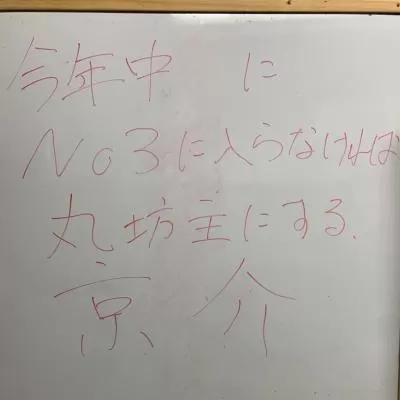 今年中 に
No3に入らなければ
丸坊主にする.
京介